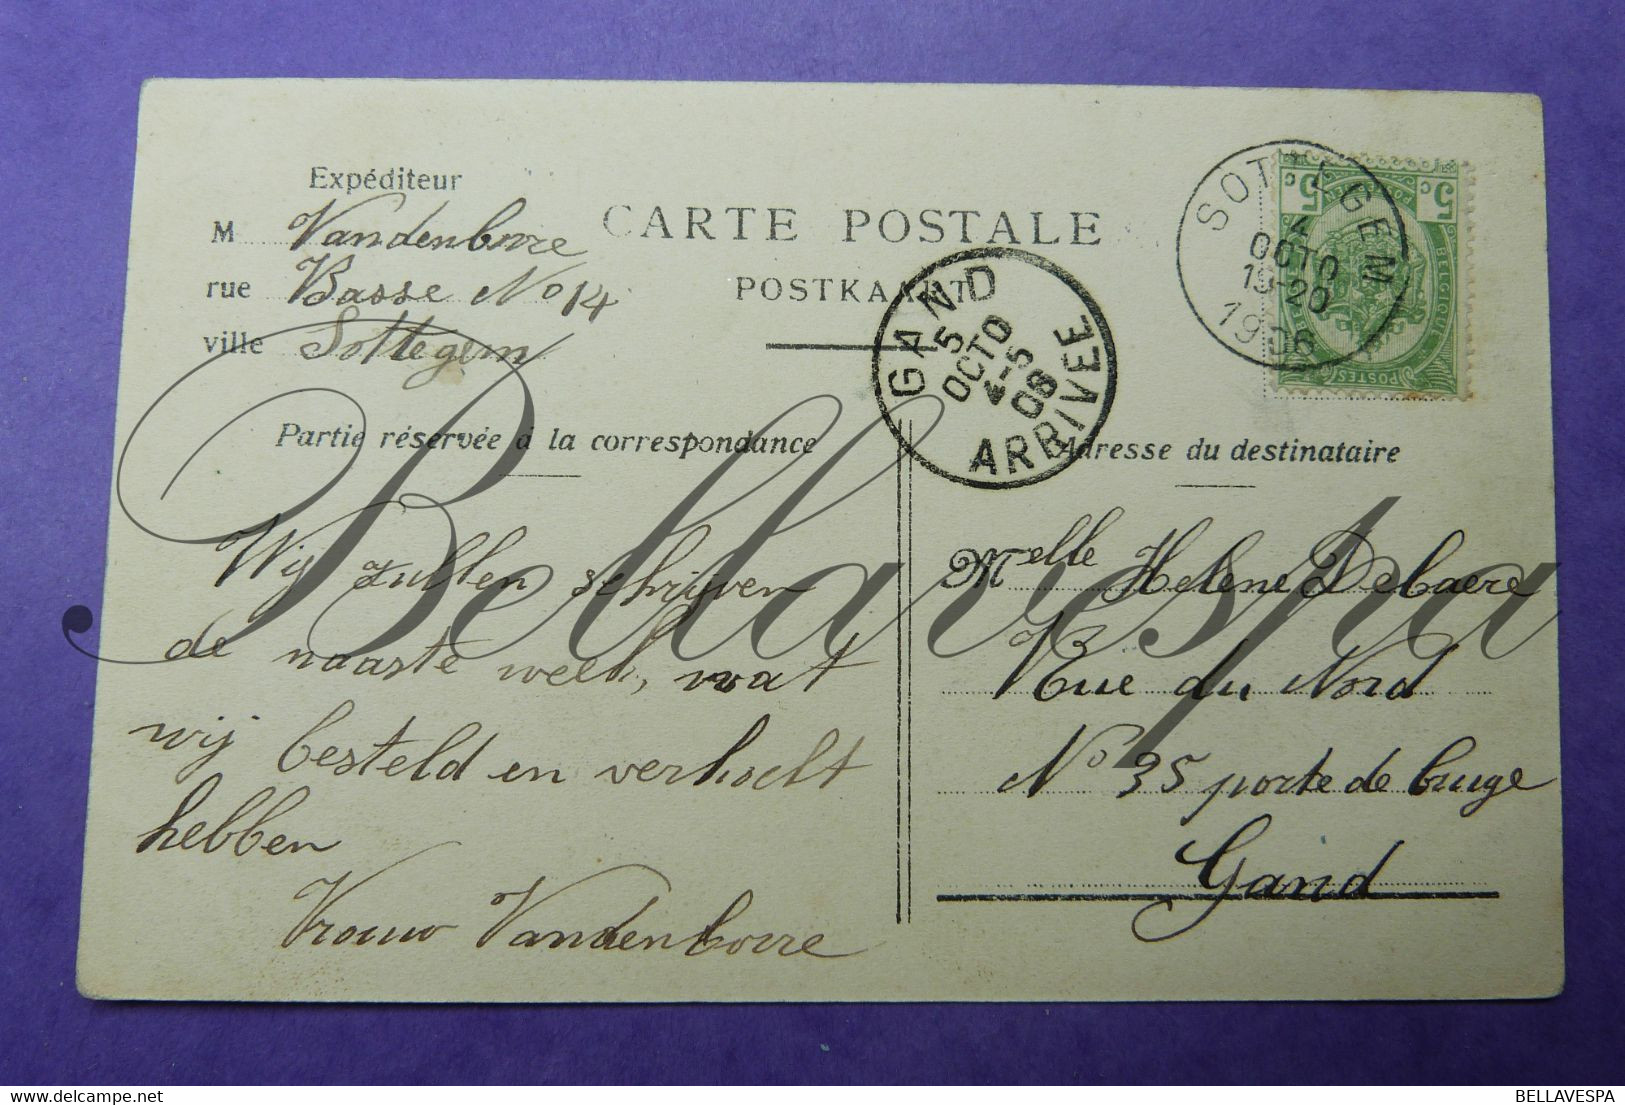 Expéditeur
M Vandenborre
rue Basse No 14
ville Sottegem
CARTE POSTALE
POSTKAART
SOTTEGEM
4
OCTO
19-20
1906
5c 5c
BELGIQUE
POSTES
GAND
5
OCTO
4-5
06
ARRIVEE
Partie réservée à la correspondance
Adresse du destinataire
Wij zullen schrijven
de naaste week, wat
wij besteld en verkocht
hebben
Vrouw Vandenborre
Melle Helene Debaere
Rue du Nord
No 35 porte de bruge
Gand
Bellavespa
BELLAVESPA